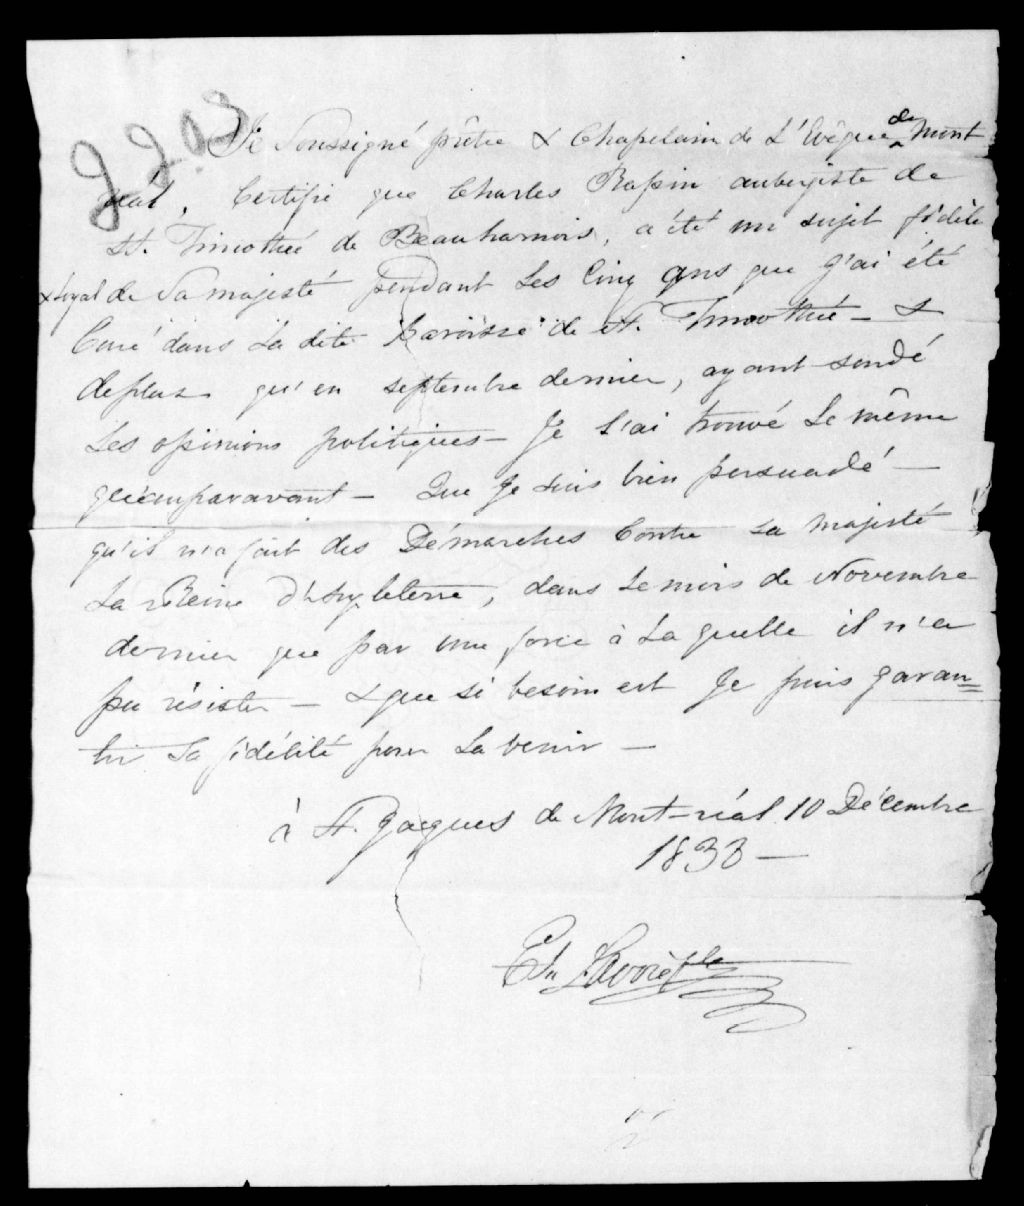 2203
Je Soussigné prêtre & Chapelain de L'Evêque de Mont
réal, Certifie que Charles Rapin aubergiste de
St. Timothée de Beauharnois, a été un sujet fidele
& loyal de Sa majesté pendant Les Cinq ans que j'ai été
Curé dans La dite Paroisse de St. Timothée - &
deplus qu'en septembre dernier, ayant sondé
Les opinions politiques - Je L'ai trouvé Le même
qu'auparavant - Que Je suis bien persuadé -
qu'il n'a fait des Démarches Contre Sa Majesté
La Reine d'Angleterre, dans Le mois de Novembre
dernier que par une force à La quelle il n'a
pu résister - & que si besoin est Je puis garan=
tir Sa fidélité pour La venir -
à St. Jacques de Mont-réal 10 Décembre
1838 -